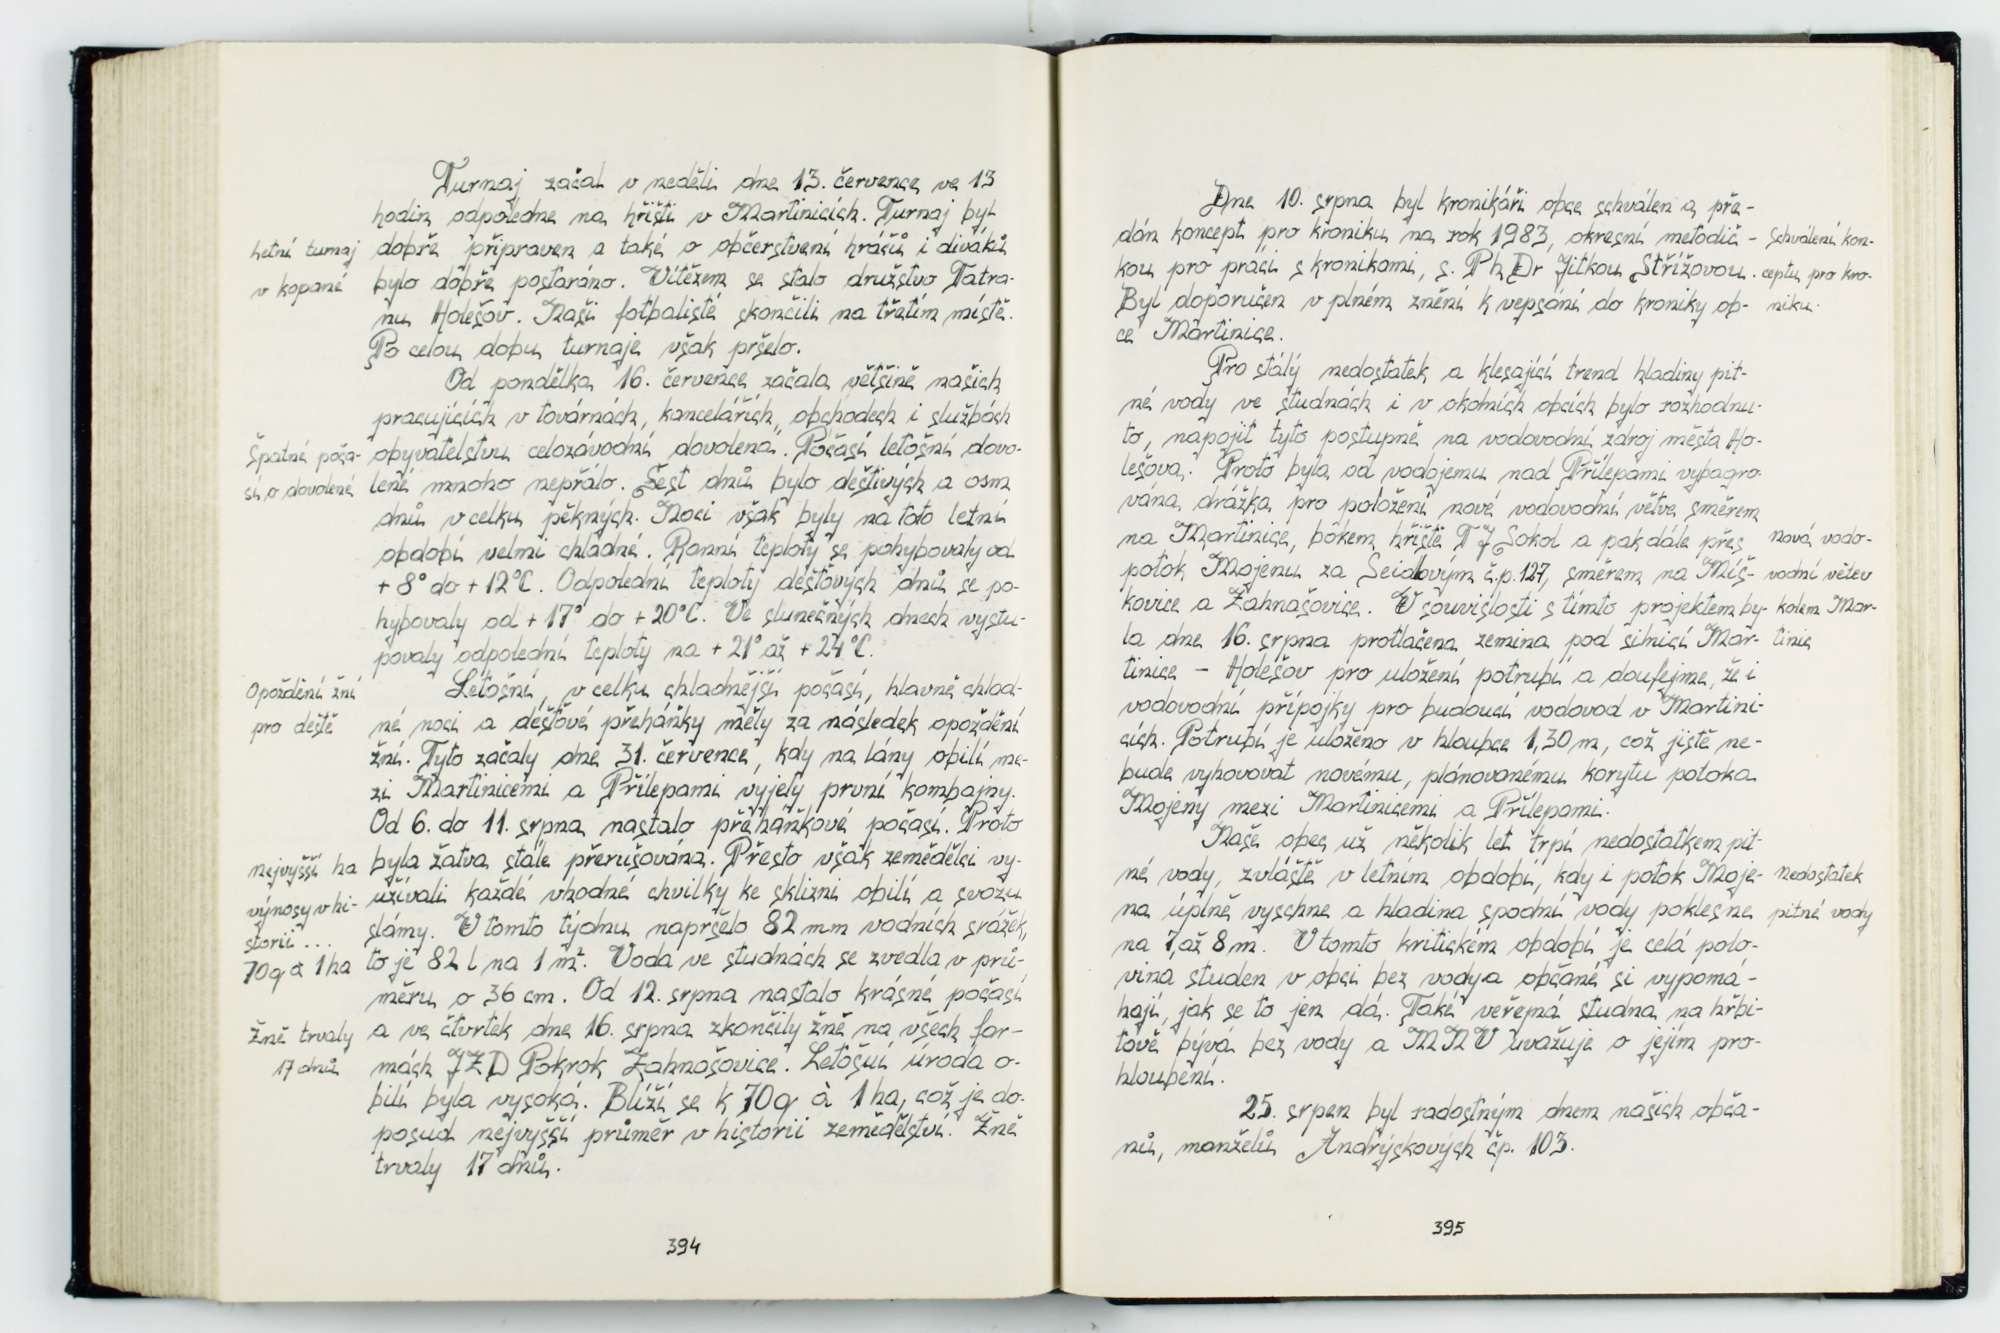 Turnaj začal v neděli dne 13. července ve 13
hodin odpoledne na hřišti v Martinicích. Turnaj byl
Letní turnaj
v kopané
dobře připraven a také o občerstvení hráčů i diváků
bylo dobře postaráno. Vítězem se stalo družstvo Tatra-
nu Holešov. Naši fotbalisté skončili na třetím místě.
Po celou dobu turnaje však pršelo.
Od pondělka 16. července začala většině našich
pracujících v továrnách, kancelářích, obchodech i službách
Špatné poča-
sí o dovolené
obyvatelstvu celozávodní dovolená. Počasí letošní dovo-
lené mnoho nepřálo. Šest dnů bylo deštivých a osm
dnů v celku pěkných. Noci však byly na toto letní
období velmi chladné. Ranní teploty se pohybovaly od
+ 8° do + 12°C. Odpolední teploty dešťových dnů se po-
hybovaly od + 17° do + 20°C. Ve slunečných dnech vystu-
povaly odpolední teploty na + 21° až + 24°C.
Opoždění žní
pro deště
Letošní, v celku chladnější počasí, hlavně chlad-
né noci a dešťové přeháňky měly za následek opoždění
žní. Tyto začaly dne 31. července, kdy na lány obilí me-
zi Martinicemi a Přílepami vyjely první kombajny.
Od 6. do 11. srpna nastalo přeháňkové počasí. Proto
nejvyšší ha
výnosy v hi-
storii ...
70q à 1 ha
byla žatva stále přerušována. Přesto však zemědělci vy-
užívali každé vhodné chvilky ke sklizni obilí a svozu
slámy. V tomto týdnu napršelo 82 mm vodních srážek,
to je 82 l na 1 m². Voda ve studnách se zvedla v prů-
měru o 36 cm. Od 12. srpna nastalo krásné počasí
Žně trvaly
17 dnů
a ve čtvrtek dne 16. srpna zkončily žně na všech far-
mách JZD Pokrok Zahnašovice. Letošní úroda o-
bilí byla vysoká. Blíží se k 70q à 1 ha, což je do-
posud nejvyšší průměr v historii zemědělství. Žně
trvaly 17 dnů.
394
Dne 10. srpna byl kronikáři obce schválen a pře-
dán koncept pro kroniku na rok 1983, okresní metodič-
kou pro práci s kronikami, s. PhDr Jitkou Střížovou.
Byl doporučen v plném znění k vepsání do kroniky ob-
ce Martinice.
Schválení kon-
ceptu pro kro-
niku.
Pro stálý nedostatek a klesající trend hladiny pit-
né vody ve studnách i v okolních obcích bylo rozhodnu-
to, napojit tyto postupně na vodovodní zdroj města Ho-
lešova. Proto byla od vodojemu nad Přílepami vybagro-
vána drážka pro položení nové vodovodní větve směrem
na Martinice, bokem hřiště TJ Sokol a pak dále přes
potok Mojenu za Seidlovým č.p. 127, směrem na Míš-
kovice a Zahnašovice. V souvislosti s tímto projektem by-
la dne 16. srpna protlačena zemina pod silnicí Mar-
tinice – Holešov pro uložení potrubí a doufejme, že i
vodovodní přípojky pro budoucí vodovod v Martini-
cích. Potrubí je uloženo v hloubce 1,30 m, což jistě ne-
bude vyhovovat novému, plánovanému korytu potoka
Mojeny mezi Martinicemi a Přílepami.
nová vodo-
vodní větev
kolem Mar-
tinic
Naše obec už několik let trpí nedostatkem pit-
né vody, zvláště v letním období, kdy i potok Moje-
na úplně vyschne a hladina spodní vody poklesne
na 7, až 8 m. V tomto kritickém období je celá polo-
vina studen v obci bez vody a občané si vypomá-
hají, jak se to jen dá. Také veřejná studna na hřbi-
tově bývá bez vody a MNV uvažuje o jejím pro-
hloubení.
nedostatek
pitné vody
25. srpen byl radostným dnem našich obča-
nů, manželů Andrýskových čp. 103.
395